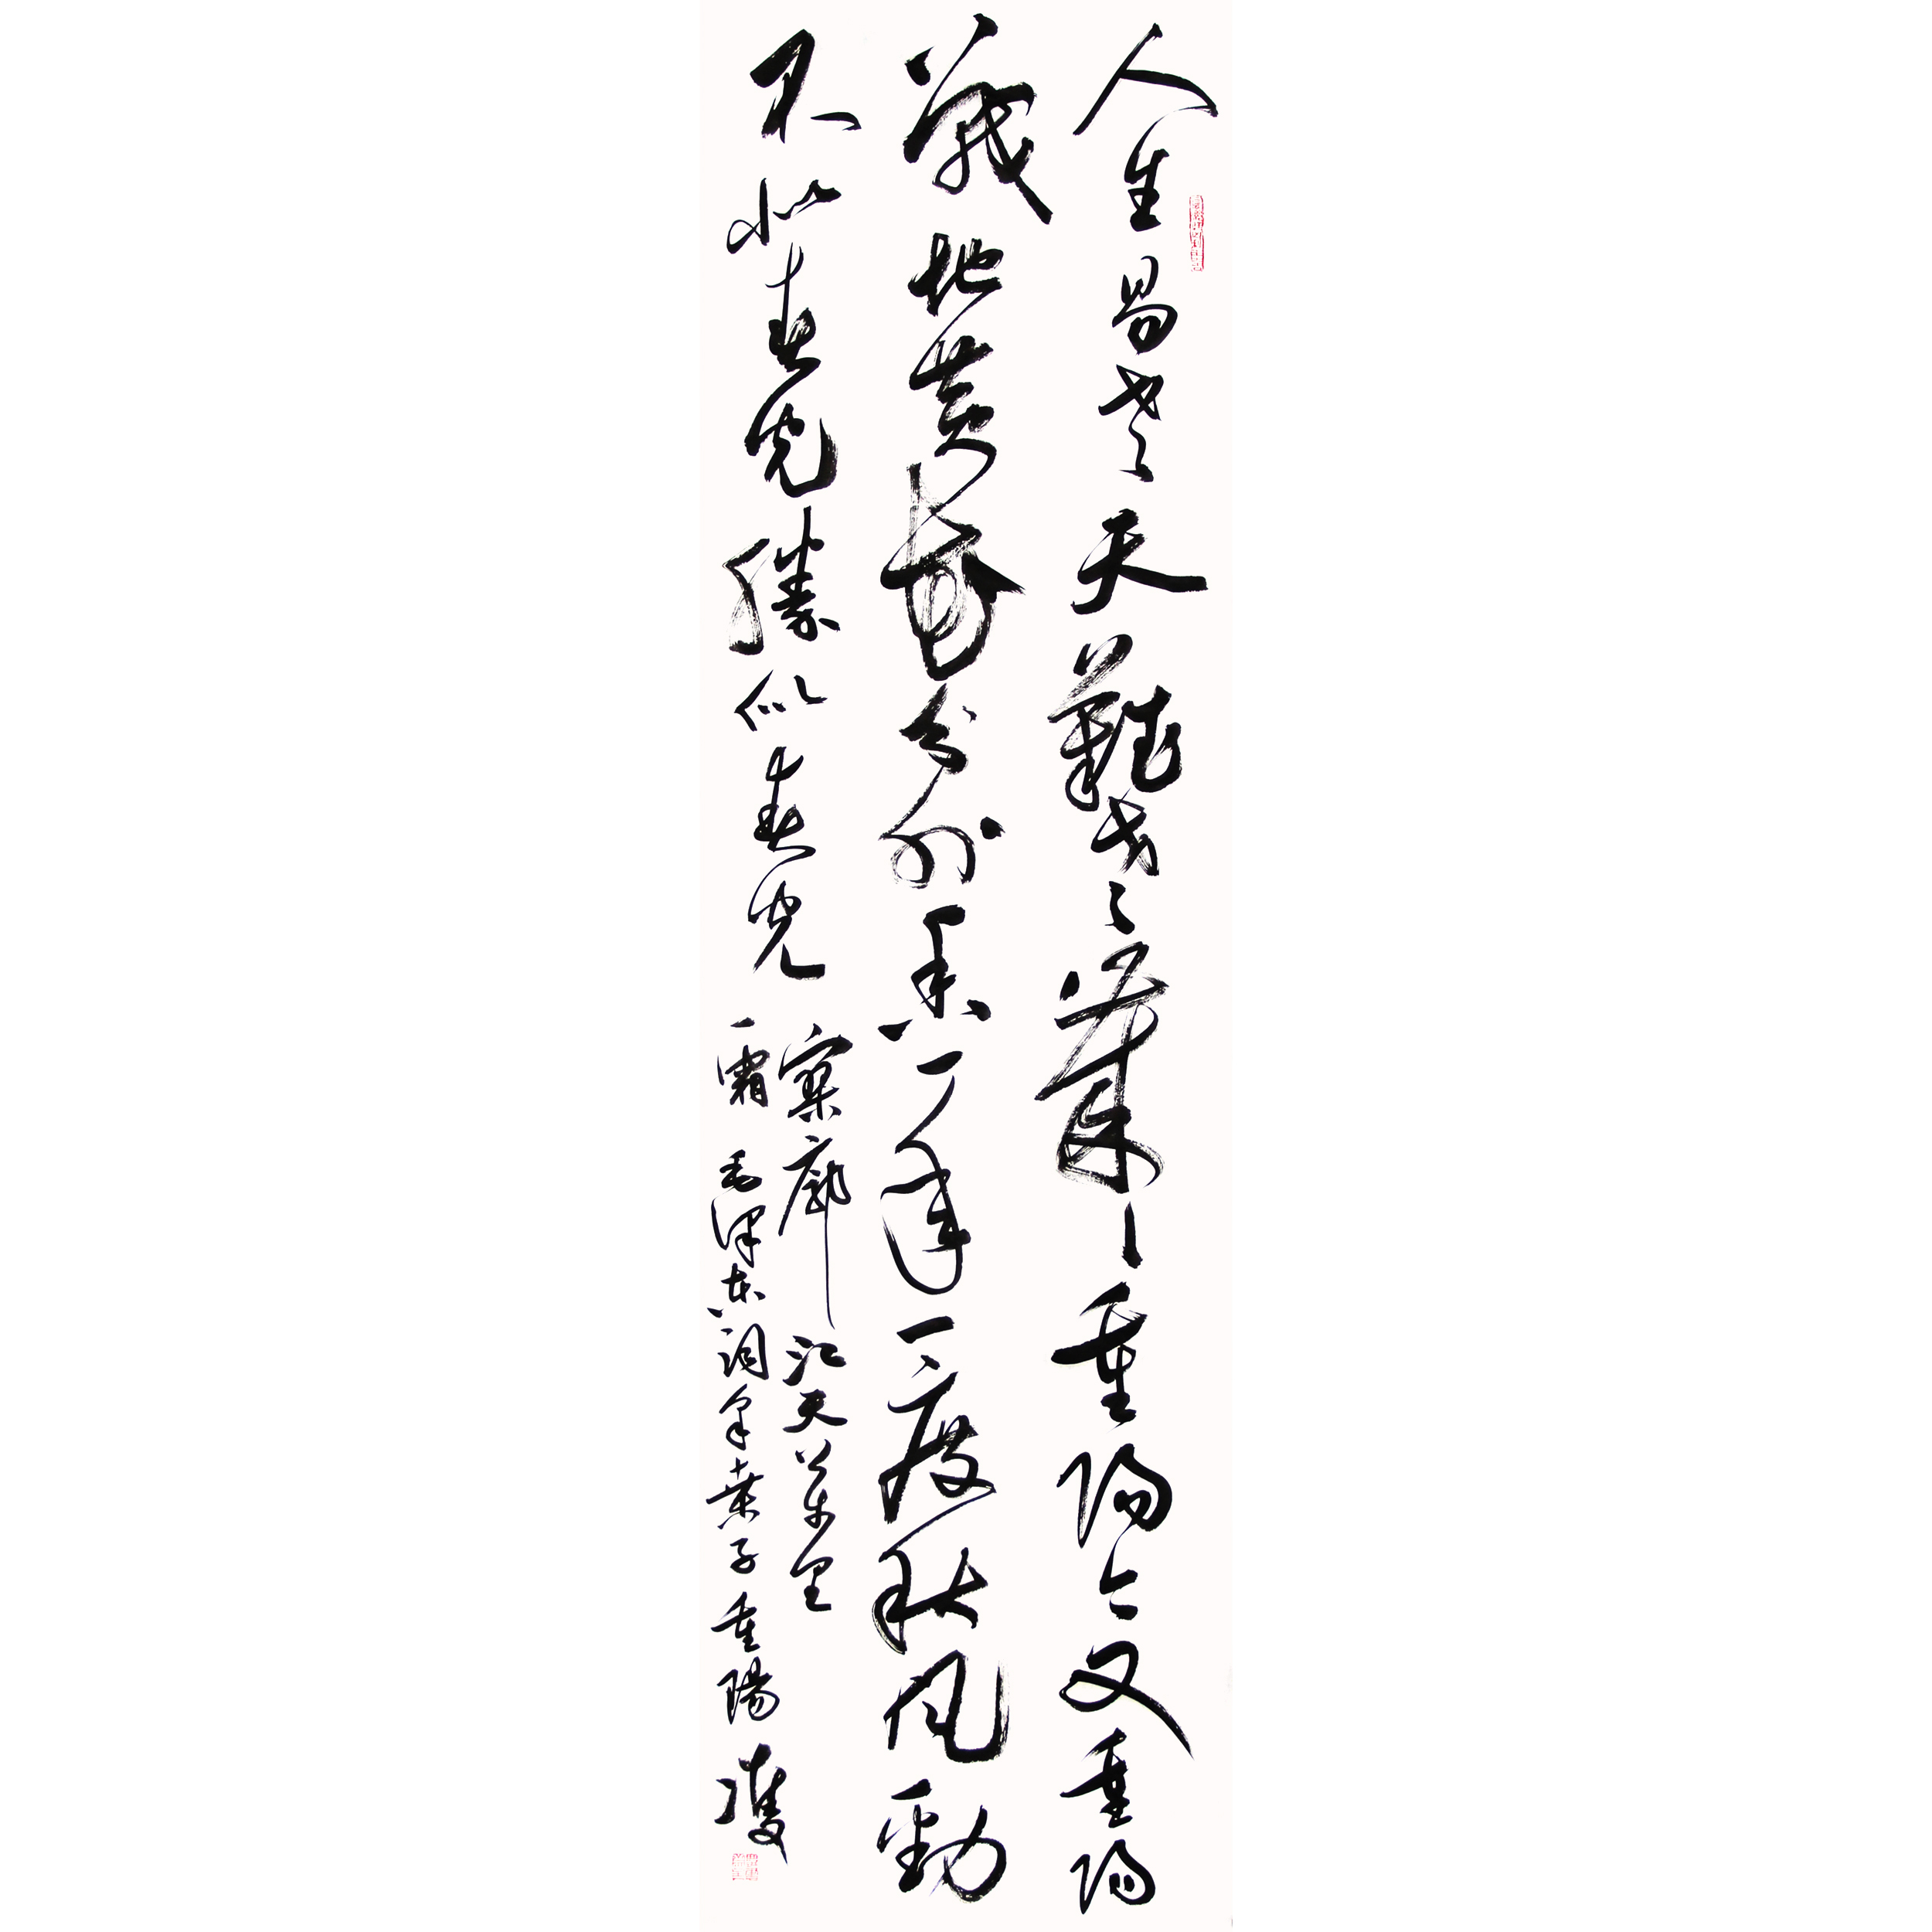 人生易老天難老歲歲重陽今又重陽
戰地黃花分外香一年一度秋風勁
不似春光勝似春光
寥廓江天萬里
霜 毛澤東詞采桑子重陽